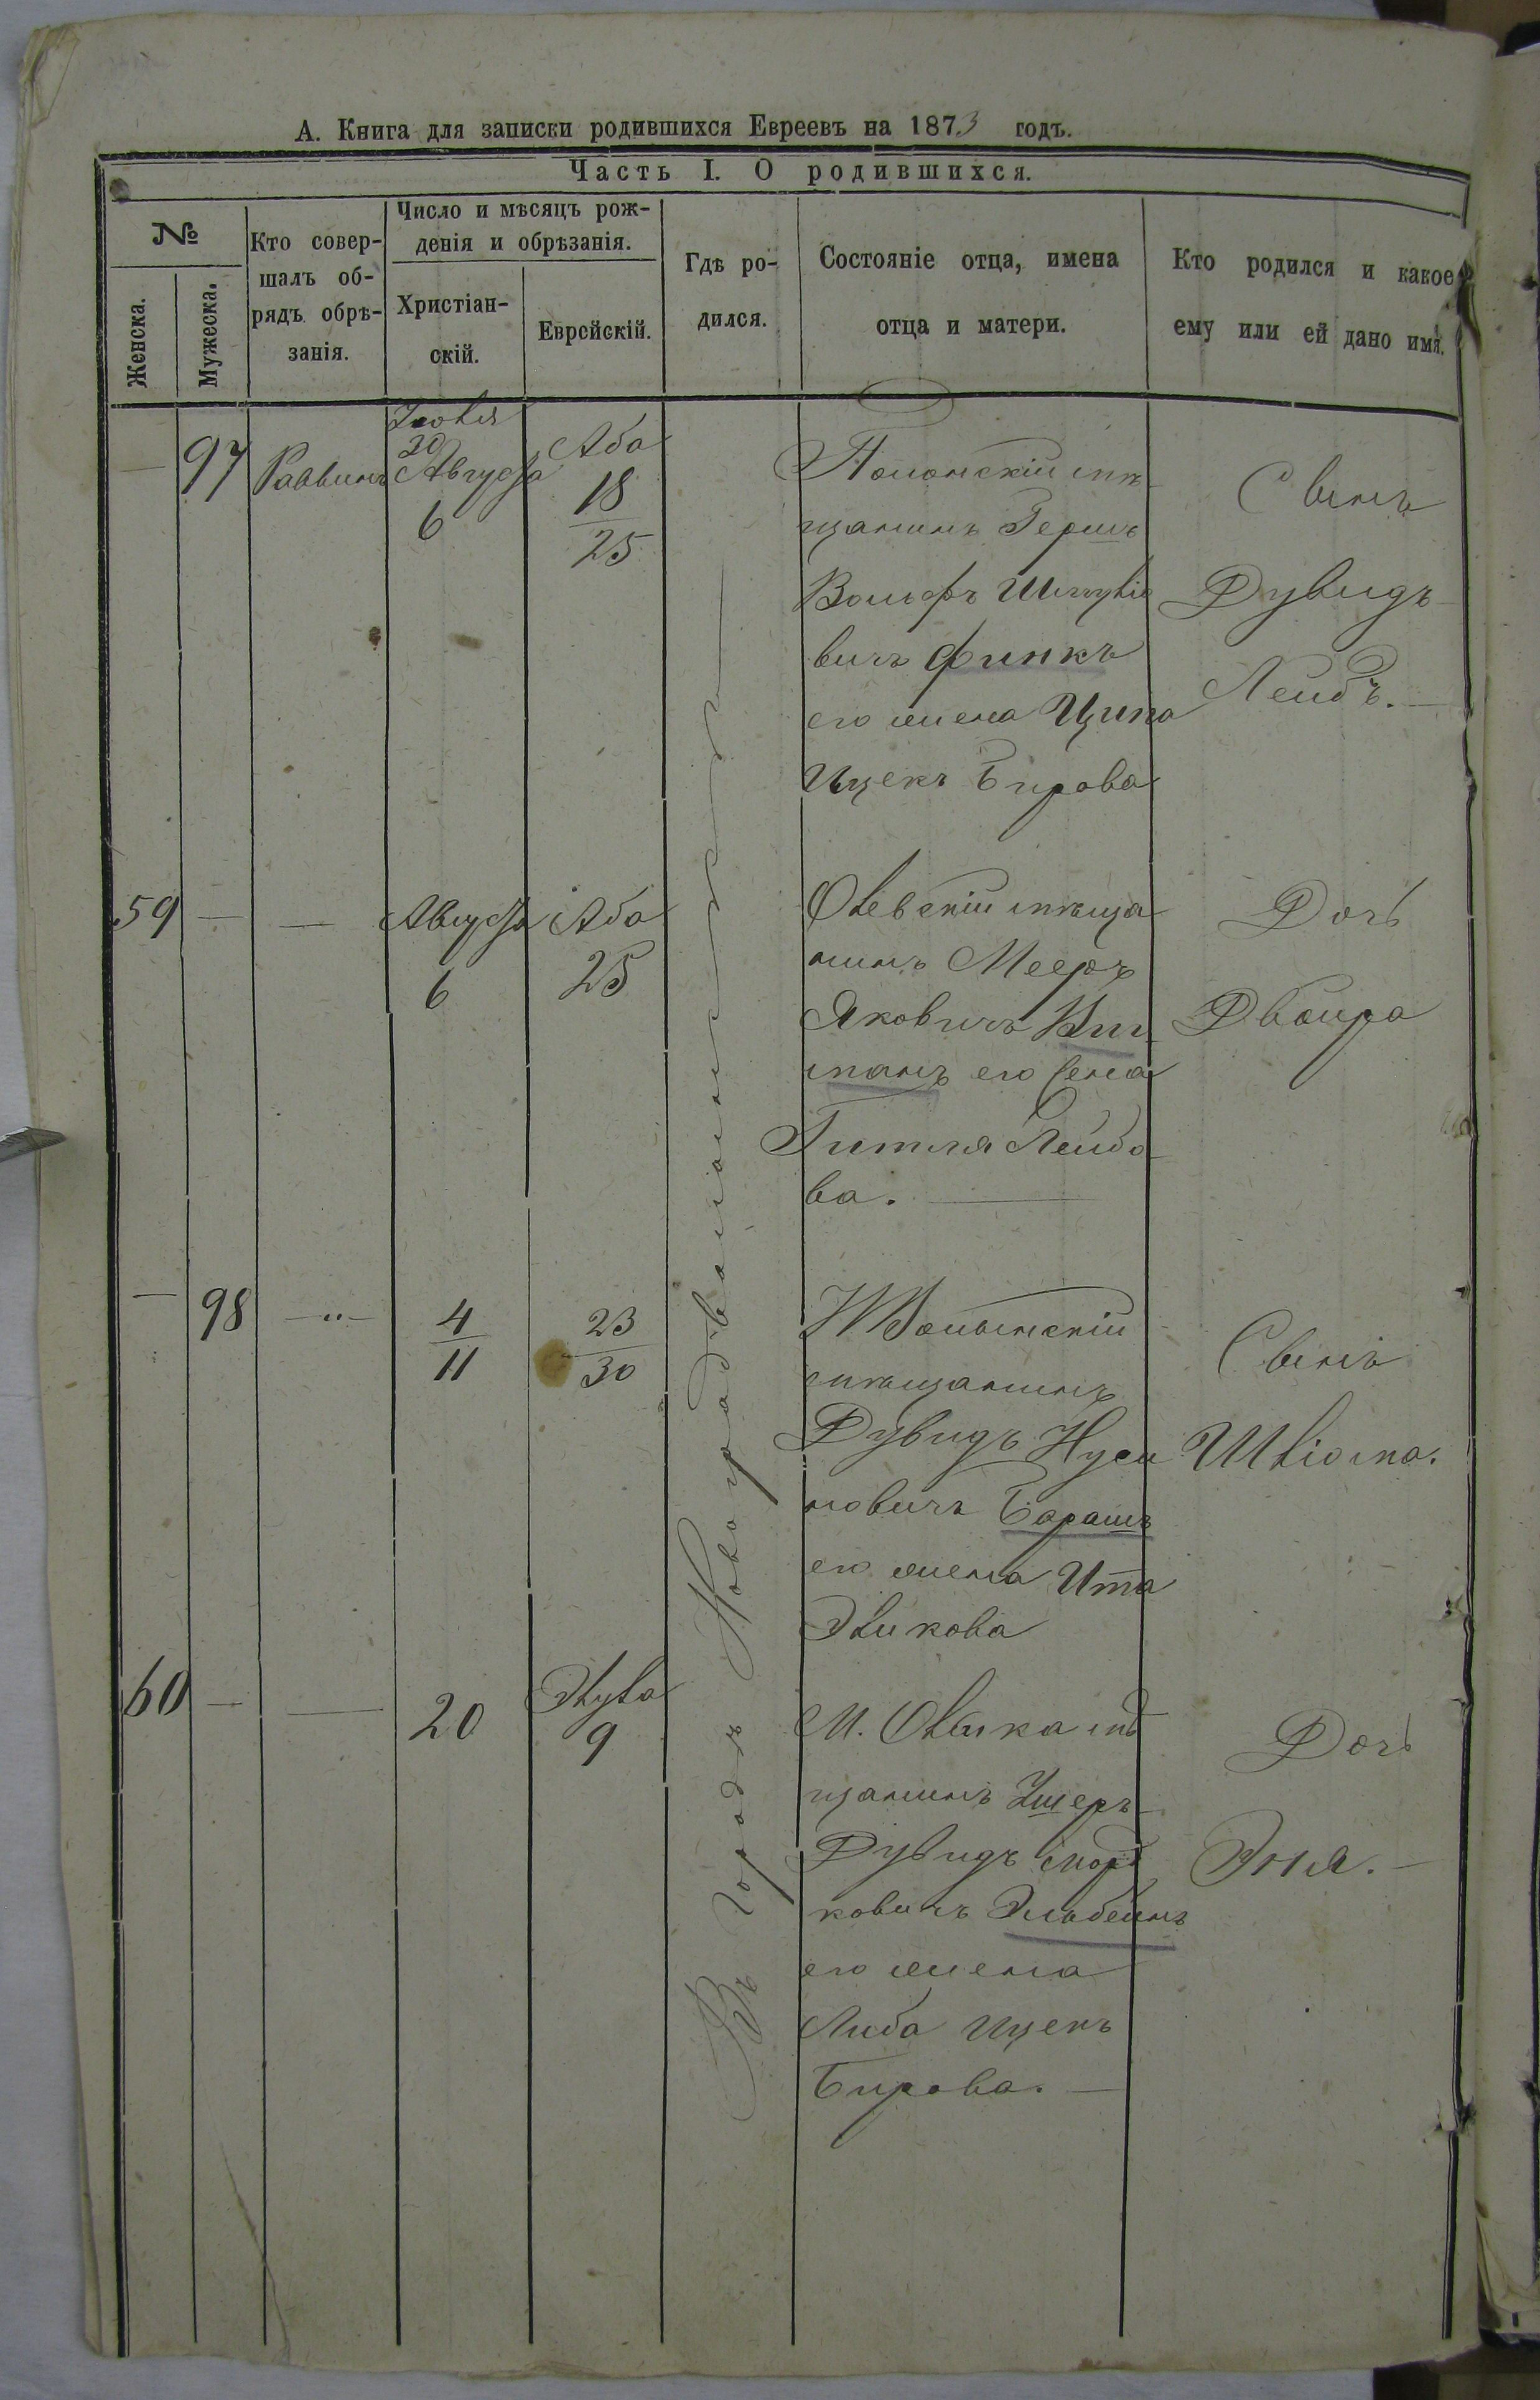 А. Книга для записки родившихся Евреевъ на 1873 годъ.
Часть I. О родившихся.
№
Женска.
Мужеска.
Кто совер-
шалъ об-
рядъ обрѣ-
занія.
Число и мѣсяцъ рож-
денія и обрѣзанія.
Христіан-
скій.
Еврейскій.
Гдѣ ро-
дился.
Состояніе отца, имена
отца и матери.
Кто родился и какое
ему или ей дано имя.
Въ городѣ Новоградволынскѣ
—
97
Раввинъ
Іюля
30
Августа
6
Аба
18
25
Полонскій мѣ-
щанинъ Гершъ
Вольфъ Шмулiо
вичъ Финкъ
его жена Ципа
Ицекъ Бирова
Сынъ
Дувидъ
Лейбъ. —
59
—
—
Августа
6
Аба
25
Олевскій мѣща
нинъ Мееръ
Яковичъ
его жена
Гитля Лейбо
ва. —
Дочь
Двойра
—
98
—"—
4
11
23
30
НВолынскій
мѣщанинъ
Дувидъ Нуси
новичъ Барашъ
его жена Ита
Эликова
Сынъ
Шліома.
60
—
—
20
Элула
9
М. Олыка мѣ
щанинъ Ушеръ
Дувидъ Морд
ковичъ
его жена
Либа Ицекъ
Бирова. —
Дочь
Эня. —